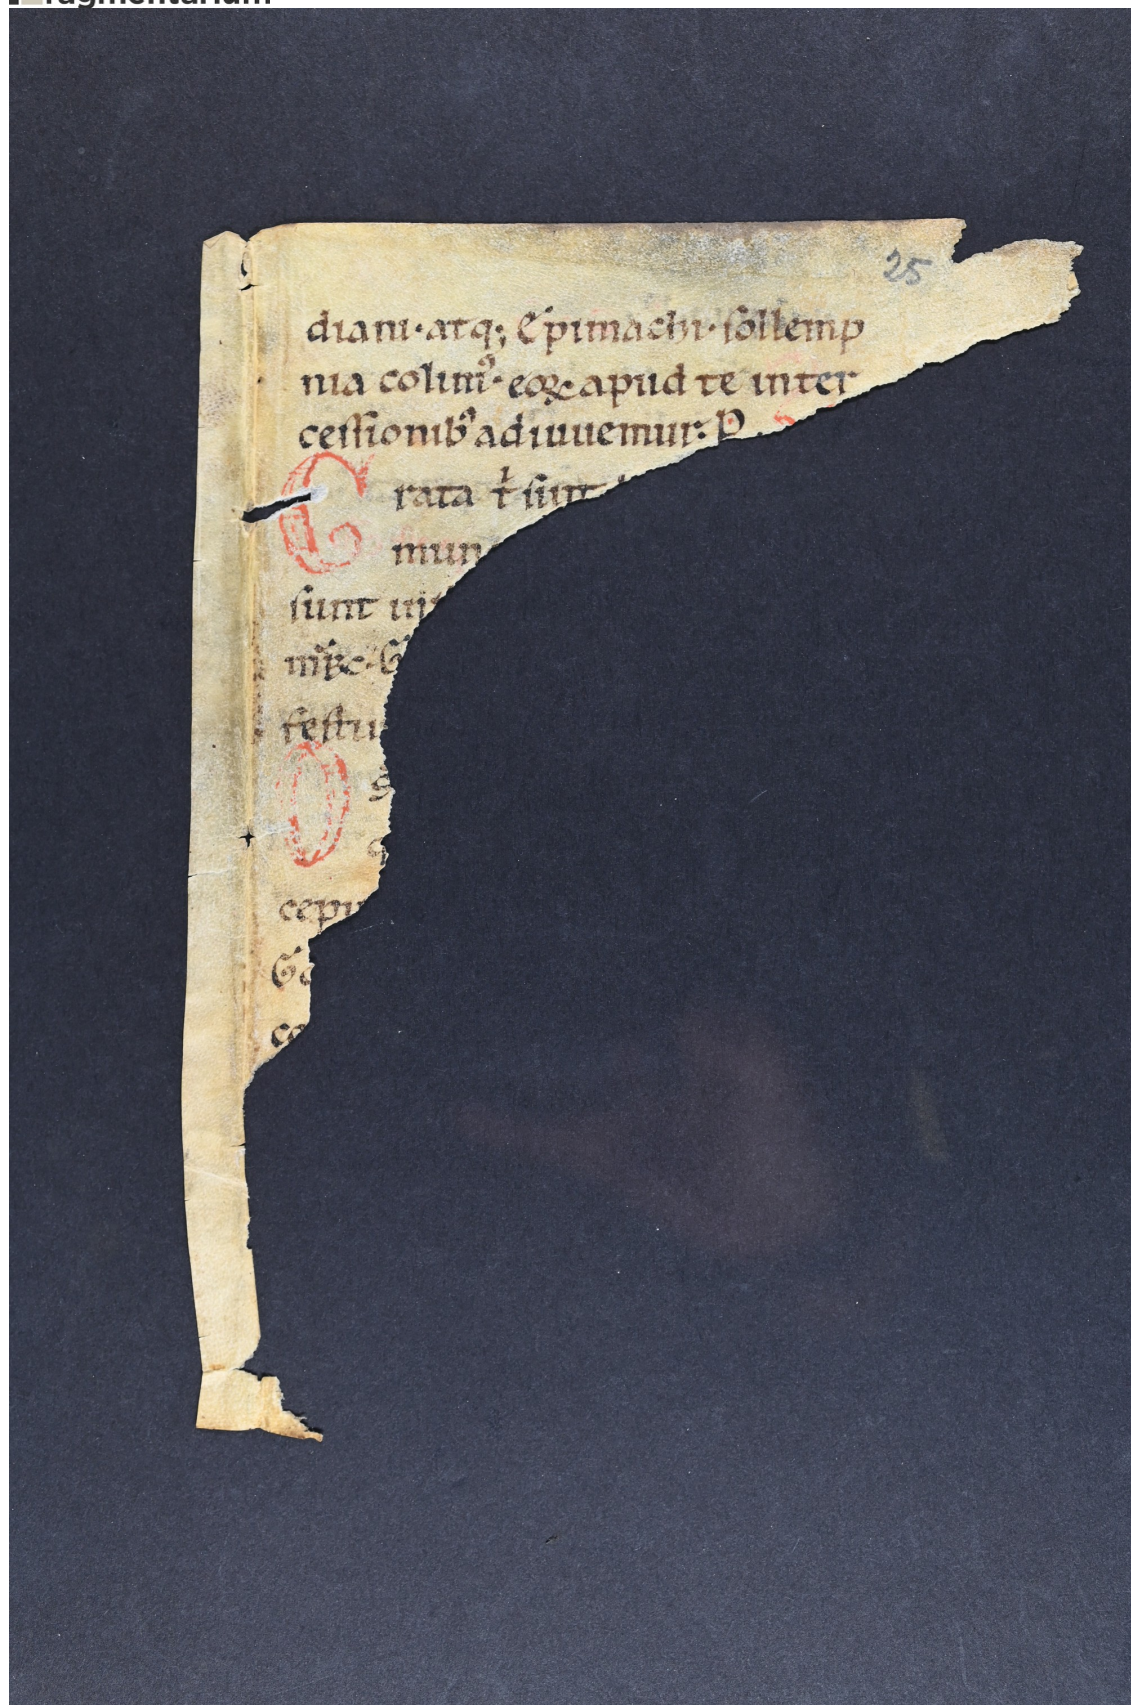 25
diani · atq; Epimachi · sollemp
nia colim⁹ · eoꝝ apud te inter
cessionib⁹ adiuuemur : P.
G rata t̄ sint
mun
sunt
festi
O
cepi